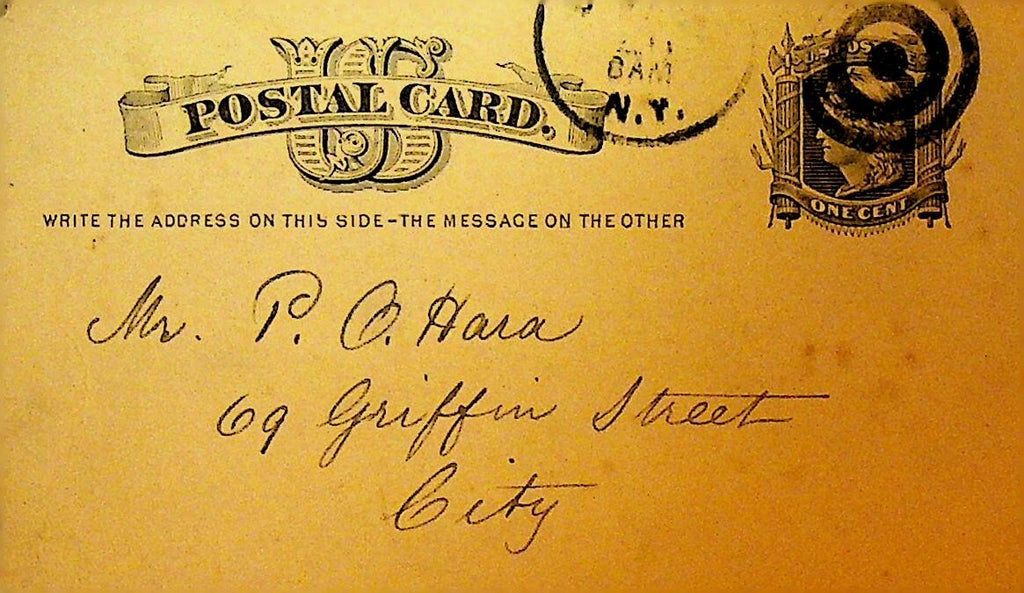 US
POSTAL CARD.
8AM
N.Y.
U.S. POS
ONE CENT
WRITE THE ADDRESS ON THIS SIDE - THE MESSAGE ON THE OTHER
Mr. P. O. Hara
69 Griffin Street
City